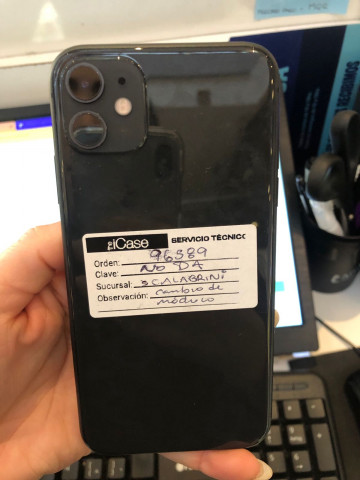 iCase SERVICIO TÉCNICO
Orden: 96589
Clave: NO DA
Sucursal: SCALABRINI
Observación: cambio de
módulo